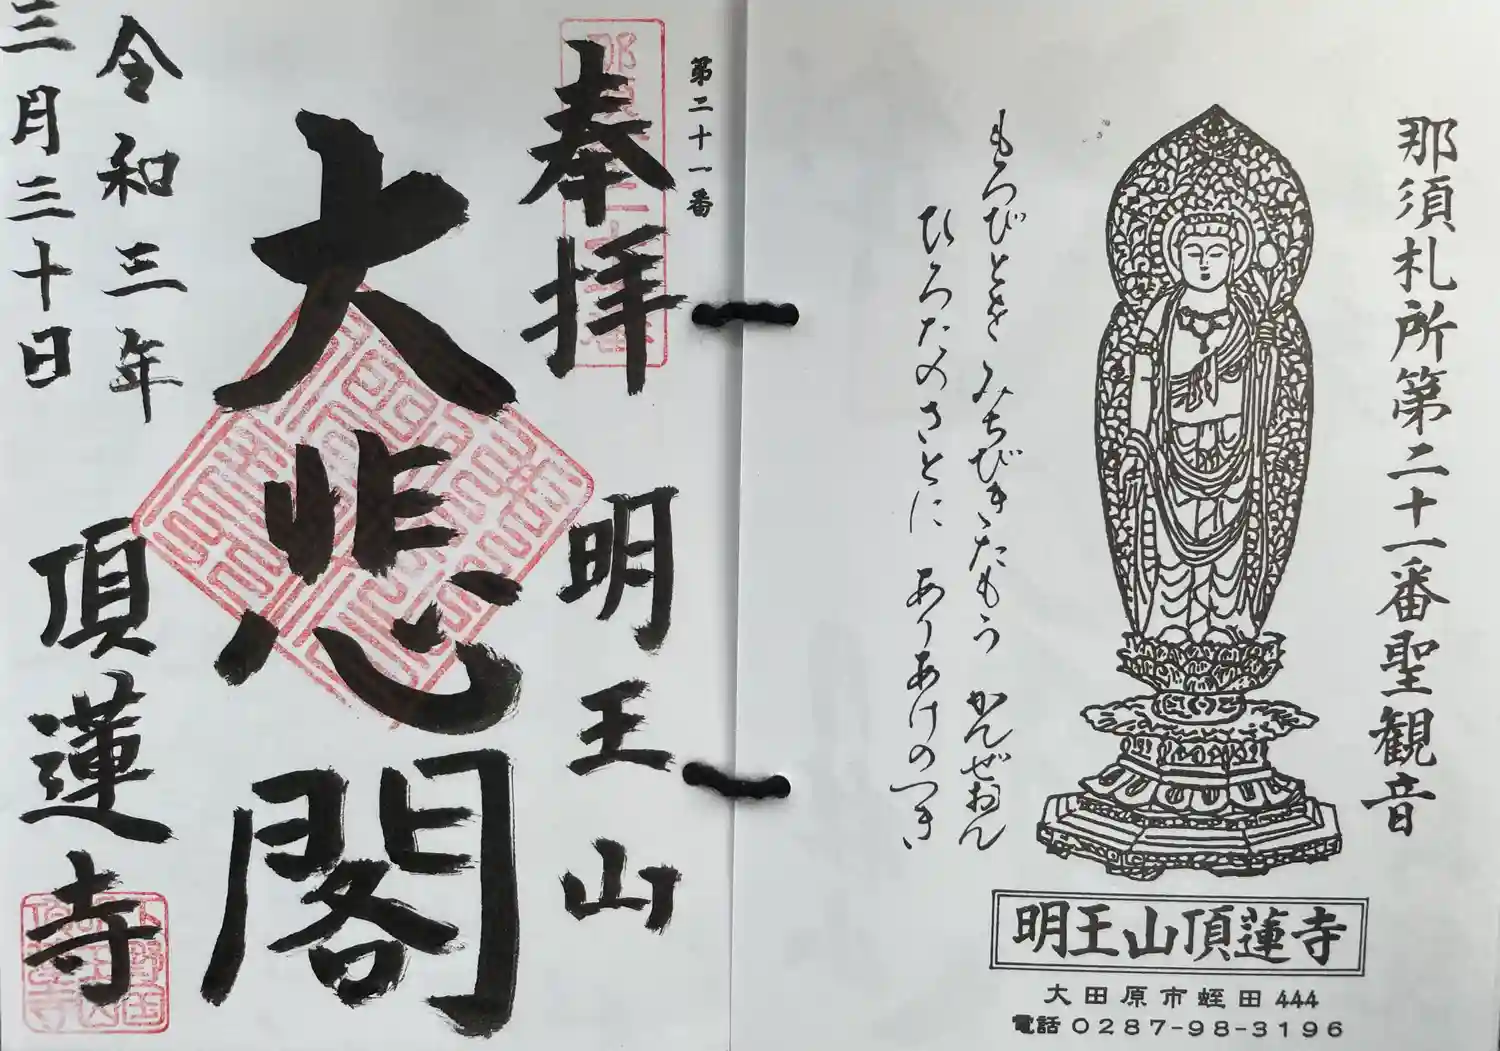 那須札所第二十一番聖観音
もろびとを みちびきたもう かんぜおん
ひろたのさとに ありあけのつき
明王山頂蓮寺
大田原市蛭田444
電話0287-98-3196
第二十一番
奉拝
明王山
大悲閣
令和三年
三月三十日
頂蓮寺